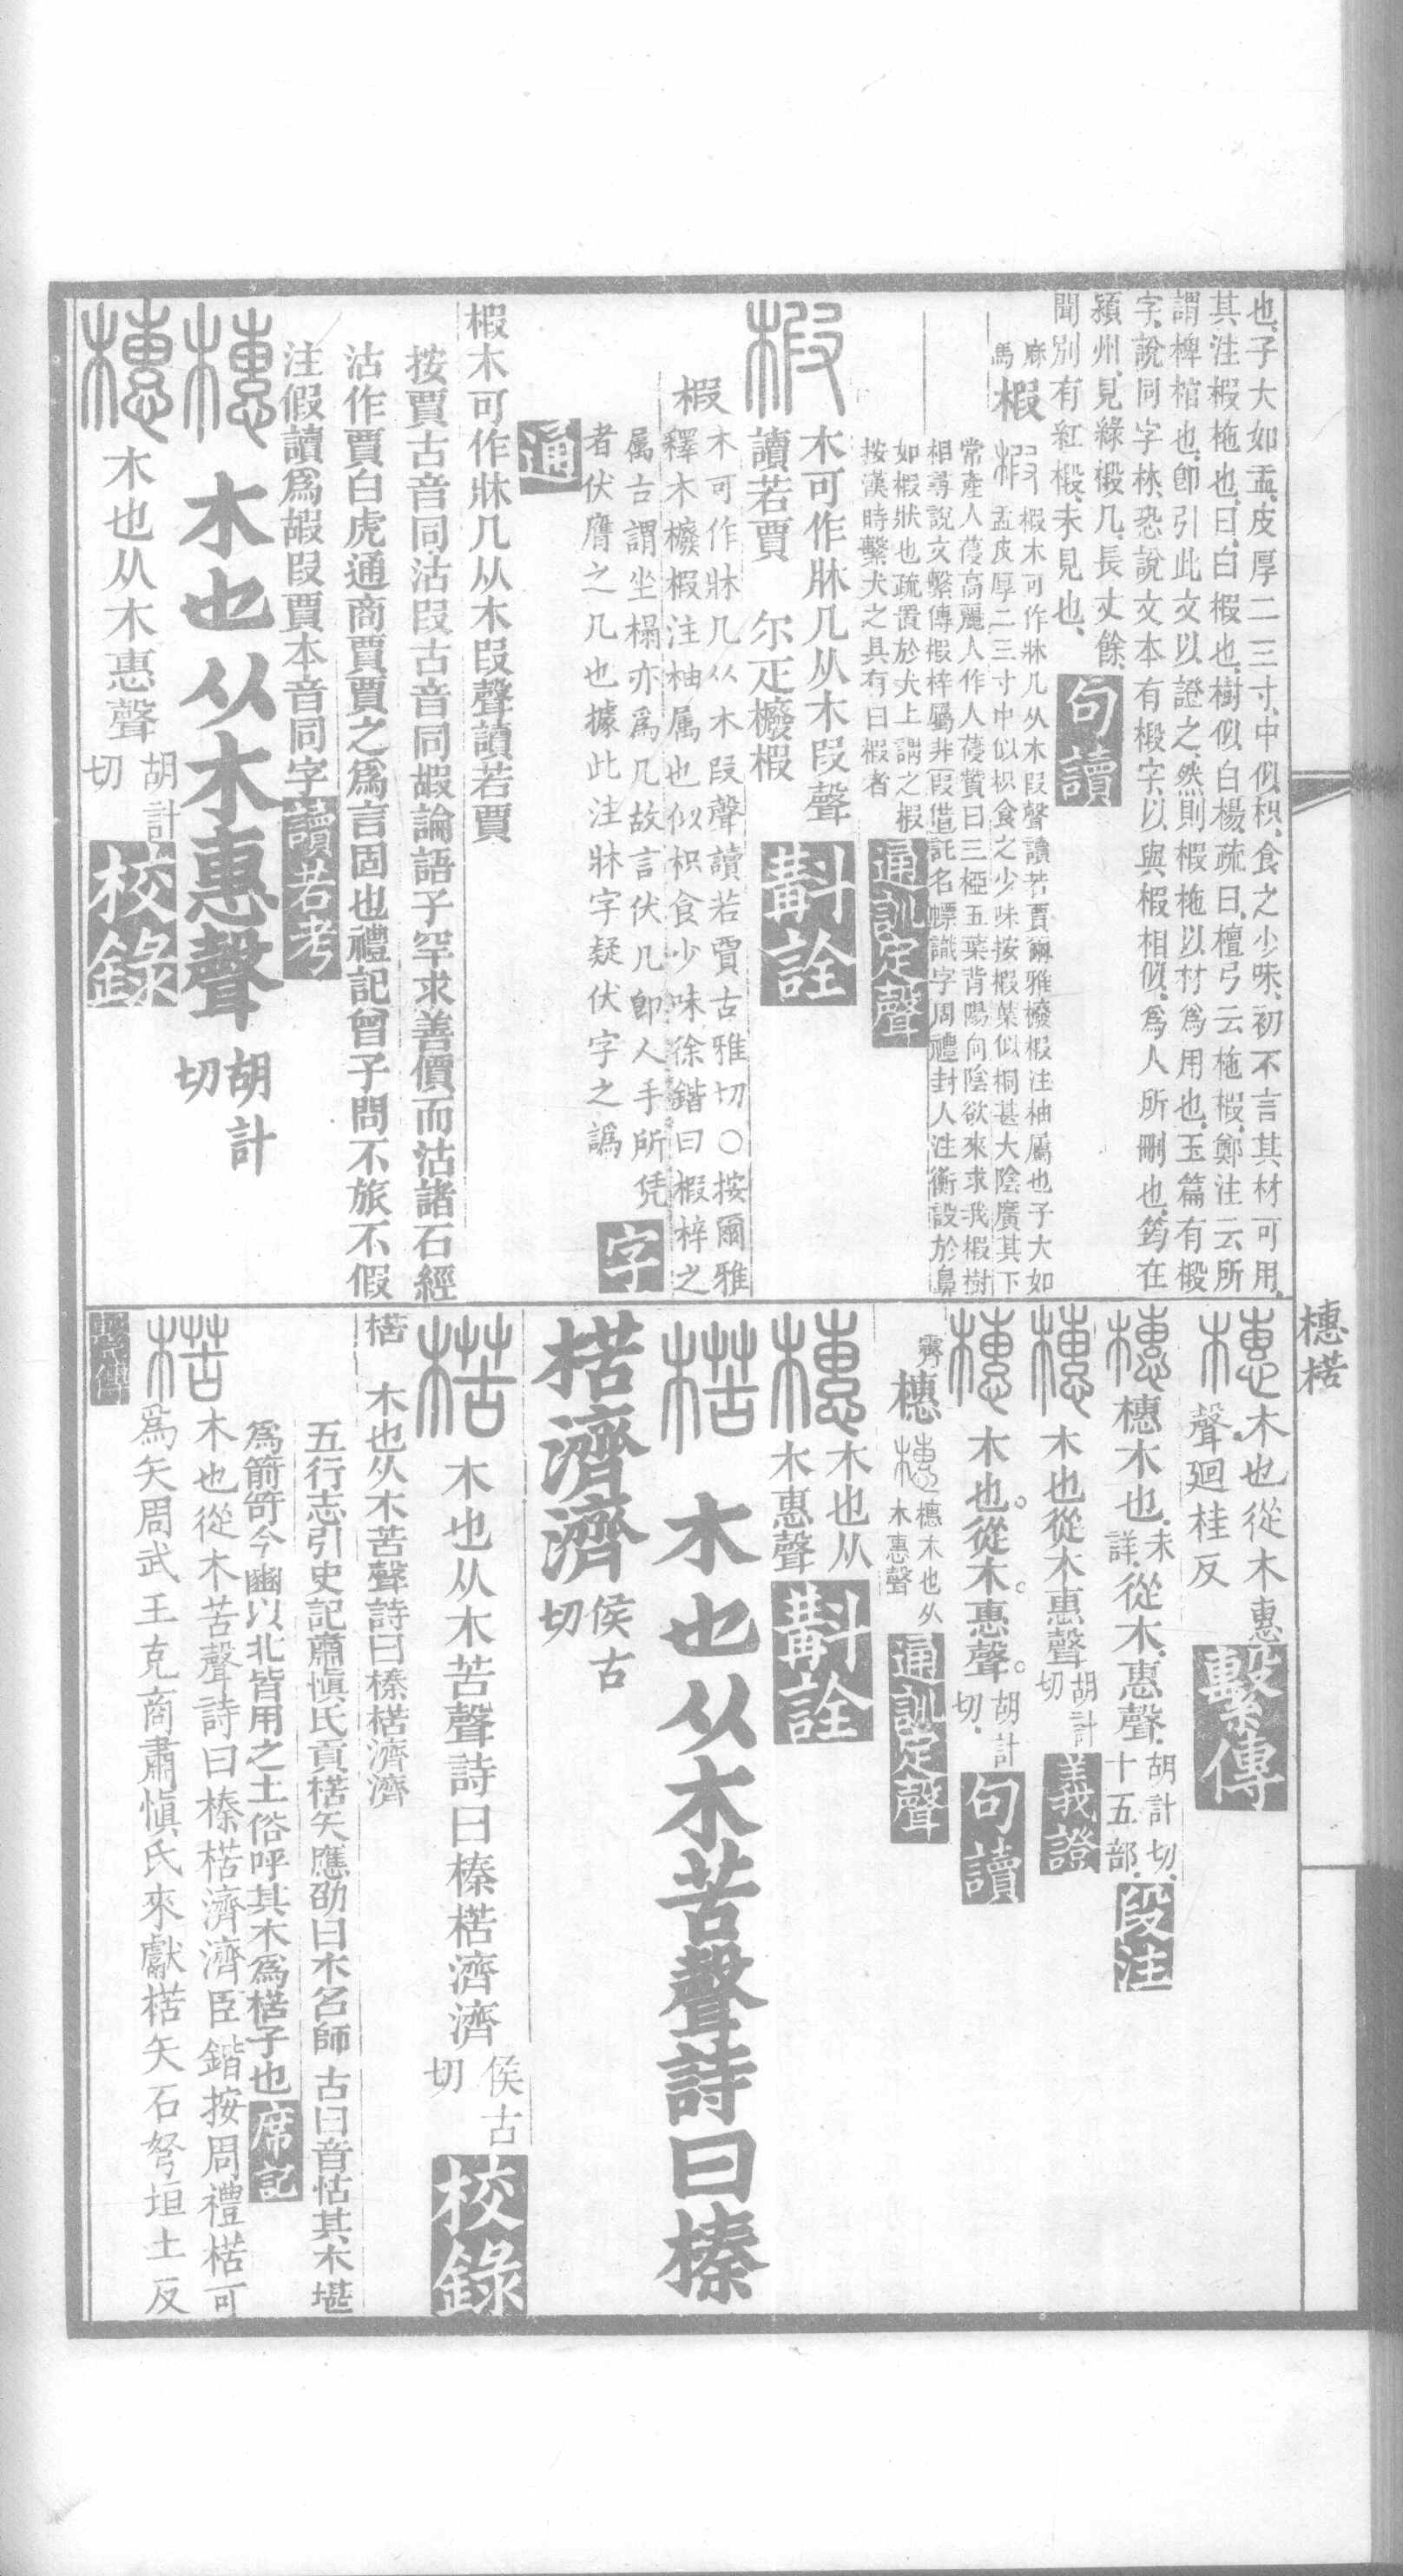 也、子大如盂、皮厚二三寸、中似枳、食之少味、初不言其材可用、
其注椵柂也、曰、白椵也、樹似白楊、疏曰、檀弓云柂椵、鄭注云、所
謂椑棺也、卽引此文以證之、然則椵柂以材爲用也、玉篇有椴
字、說同字林、恐說文本有椴字、以與椵相似、爲人所刪也、筠在
潁州、見綠椴几、長丈餘、
聞別有紅椴、未見也、句讀
麻馬
椵
椵木可作牀几从木叚聲讀若賈爾雅櫠椵注柚屬也子大如
盂皮厚二三寸中似枳食之少味按椵葉似桐甚大陰廣其下
常產人葠高麗人作人葠贊曰三椏五葉背陽向陰欲來求我椵樹
相尋說文繫傳椵梓屬非叚借託名幖識字周禮封人注衡設於鼻
如椵狀也疏置於犬上謂之椵
按漢時繫犬之具有曰椵者
通訓定聲
椵
木可作牀几从木叚聲
讀若賈 尔疋櫠椵
斠詮
椵
木可作牀几从木叚聲讀若賈古雅切○按爾雅
釋木櫠椵注柚屬也似枳食少味徐鍇曰椵梓之
属古謂坐榻亦爲几故言伏几卽人手所凭
者伏膺之几也據此注牀字疑伏字之譌
字
通
椵木可作牀几从木叚聲讀若賈
按賈古音同沽叚古音同嘏論語子罕求善價而沽諸石經
沽作賈白虎通商賈賈之爲言固也禮記曾子問不旅不假
注假讀爲嘏叚賈本音同字讀若考
橞木也从木惠聲胡計切
橞木也从木惠聲胡計切校錄
橞楛
橞木也從木惠
聲廻桂反繫傳
橞橞木也、未詳、從木、惠聲、胡計切、十五部、段注
橞木也從木惠聲胡計切義證
橞木也。從木。惠聲。胡計切、句讀
霽橞橞橞木也从木惠聲通訓定聲
橞木也从木惠聲斠詮
楛木也从木苦聲詩曰榛
楛濟濟侯古切
楛木也从木苦聲詩曰榛楛濟濟侯古切校錄
楛 木也从木苦聲詩曰榛楛濟濟
五行志引史記肅愼氏貢楛矢應劭曰木名師古曰音怙其木堪
爲箭笴今豳以北皆用之土俗呼其木爲楛子也席記
楛木也從木苦聲詩曰榛楛濟濟臣鍇按周禮楛可
爲矢周武王克商肅愼氏來獻楛矢石砮垣土反
繫傳